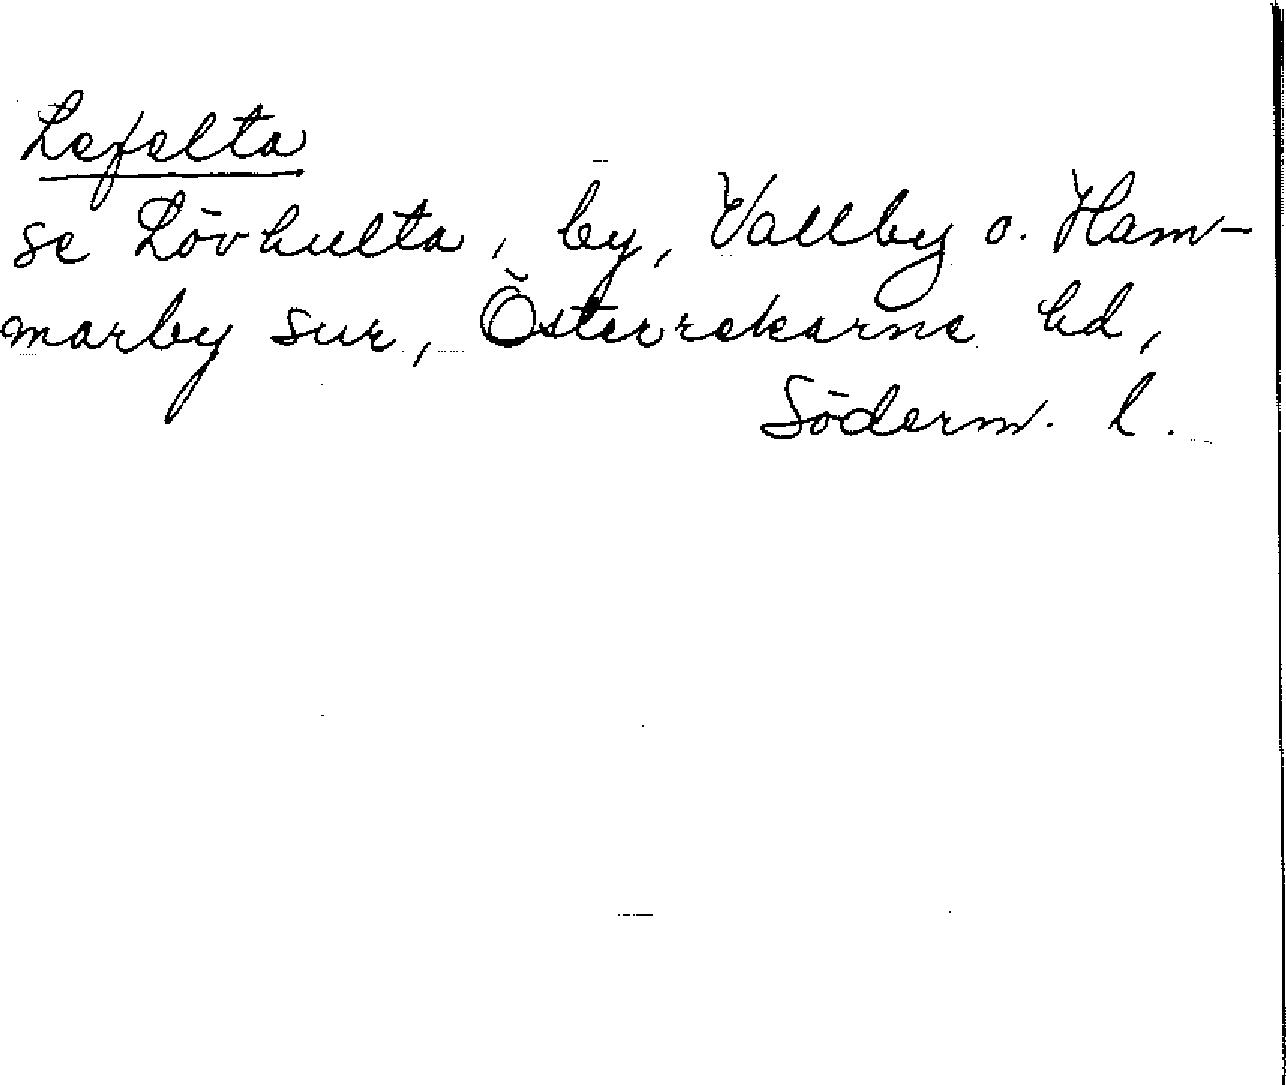 Lefelta
se Lövhulta, by, Vallby o. Ham-
marby snr, Österrekarne hd,
Söderm. l.